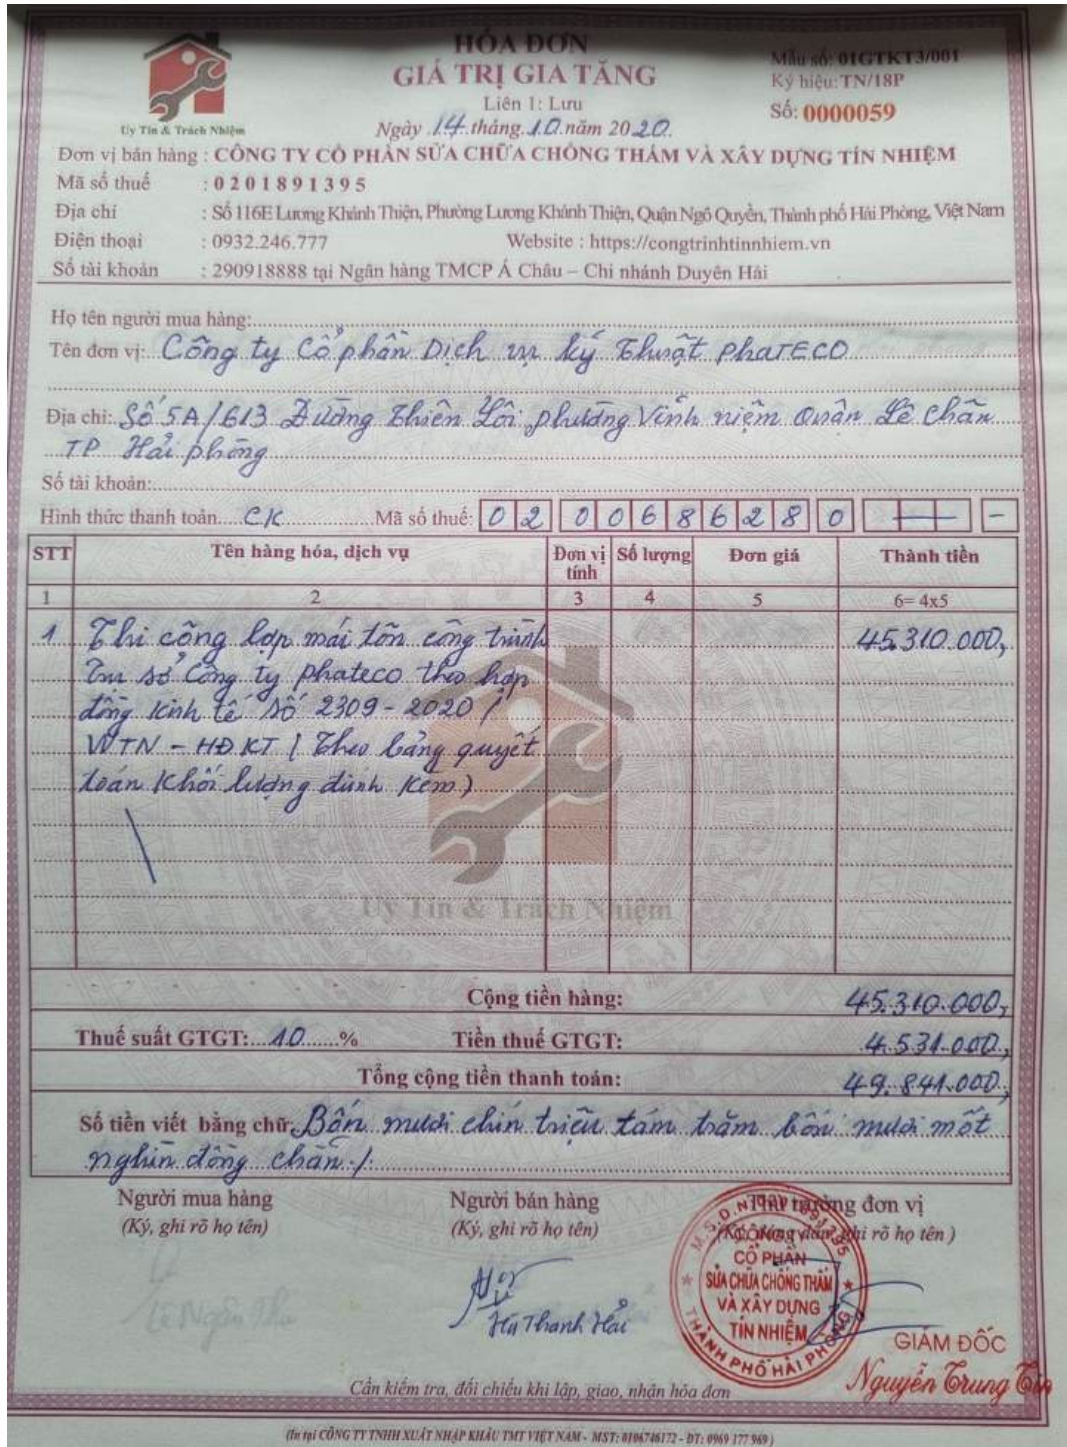 HÓA ĐƠN
GIÁ TRỊ GIA TĂNG
Liên 1: Lưu
Ngày 14 tháng 10 năm 2020
Mẫu số: 01GTKT3/001
Ký hiệu: TN/18P
Số: 0000059
Uy Tín & Trách Nhiệm
Đơn vị bán hàng : CÔNG TY CỔ PHẦN SỬA CHỮA CHỐNG THẤM VÀ XÂY DỰNG TÍN NHIỆM
Mã số thuế : 0201891395
Địa chỉ : Số 116E Lương Khánh Thiện, Phường Lương Khánh Thiện, Quận Ngô Quyền, Thành phố Hải Phòng, Việt Nam
Điện thoại : 0932.246.777 Website : https://congtrinhtinnhiem.vn
Số tài khoản : 290918888 tại Ngân hàng TMCP Á Châu – Chi nhánh Duyên Hải
Họ tên người mua hàng:
Tên đơn vị: Công ty Cổ phần Dịch vụ kỹ Thuật PhaTECO
Địa chỉ: Số 5A/613 Đường Thiên Lôi phường Vĩnh niệm Quận Lê Chân
TP Hải phòng
Số tài khoản:
Hình thức thanh toán CK Mã số thuế: 02 00686280 -
STT Tên hàng hóa, dịch vụ Đơn vị tính Số lượng Đơn giá Thành tiền
1 2 3 4 5 6= 4x5
1 Thi công lợp mái tôn công trình 45.310.000,
Trụ sở Công ty phateco theo hợp
đồng kinh tế số 2309-2020/
WTN - HĐKT ( Theo bảng quyết
toán khối lượng đính kèm)
Uy Tín & Trách Nhiệm
Cộng tiền hàng: 45.310.000,
Thuế suất GTGT: 10 % Tiền thuế GTGT: 4.531.000,
Tổng cộng tiền thanh toán: 49.841.000,
Số tiền viết bằng chữ: Bốn mươi chín triệu tám trăm bốn mươi mốt
nghìn đồng chẵn./.
Người mua hàng Người bán hàng Thủ trưởng đơn vị
(Ký, ghi rõ họ tên) (Ký, ghi rõ họ tên) (Ký, đóng dấu, ghi rõ họ tên )
M.S.D.N: 0201891395
CÔNG TY
CỔ PHẦN
SỬA CHỮA CHỐNG THẤM
VÀ XÂY DỰNG
TÍN NHIỆM
THÀNH PHỐ HẢI PHÒNG
Lê Ngân
Thanh Hải
GIÁM ĐỐC
Nguyễn Trung
Cần kiểm tra, đối chiếu khi lập, giao, nhận hóa đơn
(In tại CÔNG TY TNHH XUẤT NHẬP KHẨU TMT VIỆT NAM - MST: 0106746172 - ĐT: 0969 177 969 )